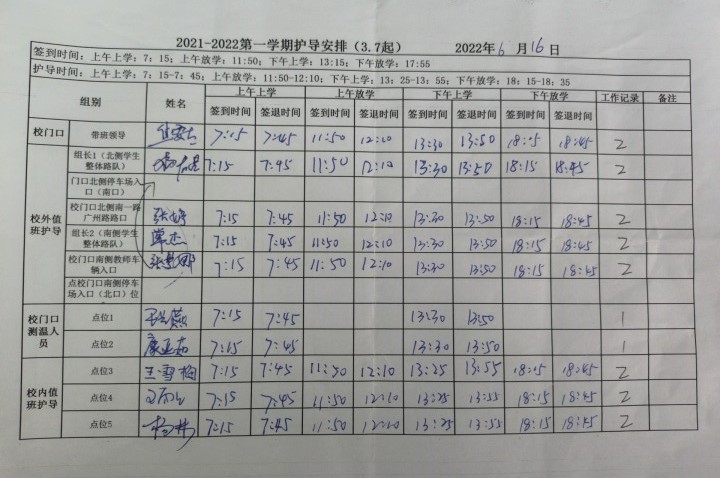 2021-2022第一学期护导安排（3.7起） 2022年6月16日
签到时间：上午上学：7：15；上午放学：11:50；下午上学：13:15；下午放学：17:55
护导时间：上午上学：7：15-7：45；上午放学：11:50-12:10；下午上学：13：25-13：55；下午放学：18：15-18：35
组别 姓名 上午上学 上午放学 下午上学 下午放学 工作记录 备注
签到时间 签退时间 签到时间 签退时间 签到时间 签退时间 签到时间 签退时间
校门口 带班领导 7:15 7:45 11:50 12:10 13:30 13:50 18:15 18:45 2
校外值班护导
组长1（北侧学生整体路队） 7:15 7:45 11:50 12:10 13:30 13:50 18:15 18:45 2
门口北侧停车场入口（南口）
校门口北侧南一路广州路路口 张婷 7:15 7:45 11:50 12:10 13:30 13:50 18:15 18:45 2
组长2（南侧学生整体路队） 常杰 7:15 7:45 11:50 12:10 13:30 13:50 18:15 18:45 2
校门口南侧教师车辆入口 7:15 7:45 11:50 12:10 13:30 13:50 18:15 18:45 2
点校门口南侧停车场入口（北口）位
校门口测温人员
点位1 7:15 7:45 13:30 13:50 1
点位2 康亚茹 7:15 7:45 13:30 13:50 1
校内值班护导
点位3 王雪梅 7:15 7:45 11:50 12:10 13:25 13:55 18:15 18:45 2
点位4 7:15 7:45 11:50 12:10 13:25 13:55 18:15 18:45 2
点位5 7:15 7:45 11:50 12:10 13:25 13:55 18:15 18:45 2